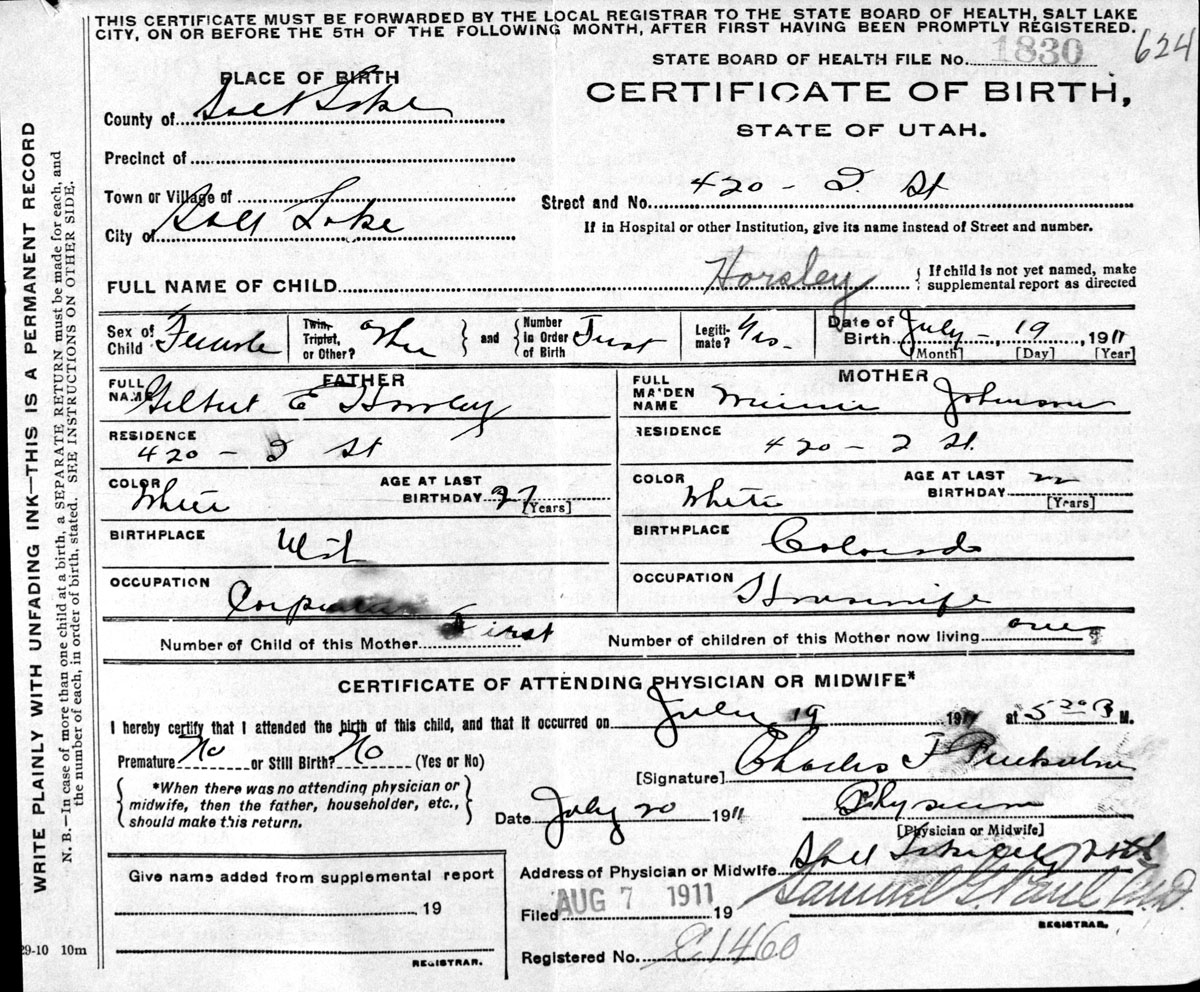 THIS CERTIFICATE MUST BE FORWARDED BY THE LOCAL REGISTRAR TO THE STATE BOARD OF HEALTH, SALT LAKE
CITY, ON OR BEFORE THE 5TH OF THE FOLLOWING MONTH, AFTER FIRST HAVING BEEN PROMPTLY REGISTERED.
624
STATE BOARD OF HEALTH FILE No. 1830
PLACE OF BIRTH
CERTIFICATE OF BIRTH,
STATE OF UTAH.
County of Salt Lake
Precinct of
Town or Village of
Street and No. 420 - 2 St
City of Salt Lake
If in Hospital or other Institution, give its name instead of Street and number.
FULL NAME OF CHILD Horsley
{ If child is not yet named, make
supplemental report as directed
Sex of Child Female
Twin, Triplet, or Other? Other } and { Number in Order of Birth First
Legiti-mate? Yes.
Date of Birth July - 19, 1911
[Month] [Day] [Year]
FATHER
FULL NAME Gilbert E Horsley
RESIDENCE
420 - 2 St
COLOR White
AGE AT LAST BIRTHDAY 27 [Years]
BIRTHPLACE
OCCUPATION
MOTHER
FULL MAIDEN NAME Minnie Johnson
RESIDENCE
420 - 2 St.
COLOR White
AGE AT LAST BIRTHDAY 22 [Years]
BIRTHPLACE Colorado
OCCUPATION Housewife
Number of Child of this Mother First
Number of children of this Mother now living one
CERTIFICATE OF ATTENDING PHYSICIAN OR MIDWIFE*
I hereby certify that I attended the birth of this child, and that it occurred on July 19 1911 at 5 20 M.
Premature No or Still Birth? No (Yes or No)
[Signature] Charles F
*When there was no attending physician or
midwife, then the father, householder, etc.,
should make this return.
Date July 20 1911
Physician
[Physician or Midwife]
Address of Physician or Midwife Salt Lake City Utah
Give name added from supplemental report
19
REGISTRAR.
Filed AUG 7 1911 19
Samuel G. Paul M.D.
REGISTRAR.
Registered No. C1460
29-10 10m
WRITE PLAINLY WITH UNFADING INK—THIS IS A PERMANENT RECORD
N. B.—In case of more than one child at a birth, a SEPARATE RETURN must be made for each, and
the number of each, in order of birth, stated. SEE INSTRUCTION ON OTHER SIDE.